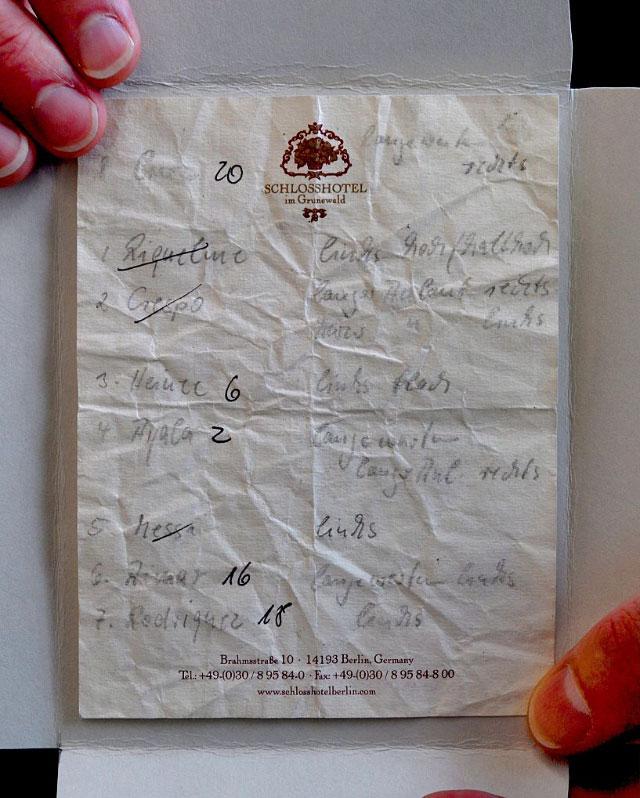 lange warten
20 rechts
SCHLOSSHOTEL
im Grunewald
1 Riquelme links
2 Crespo langer Anlauf rechts
links
3. Heinze 6 links flach
4 Ayala 2 lange warten
rechts
5. Messi links
6. Aimar 16 lange warten links
7. Rodriguez 18 links
Brahmsstraße 10 · 14193 Berlin, Germany
Tel.: +49-(0)30 / 8 95 84-0 · Fax: +49-(0)30 / 8 95 84-8 00
www.schlosshotelberlin.com